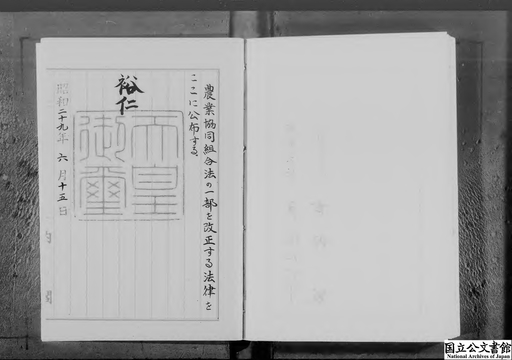 農業協同組合法の一部を改正する法律を
ここに公布する
裕仁
天皇
御璽
昭和二十九年六月十五日
国立公文書館
National Archives of Japan